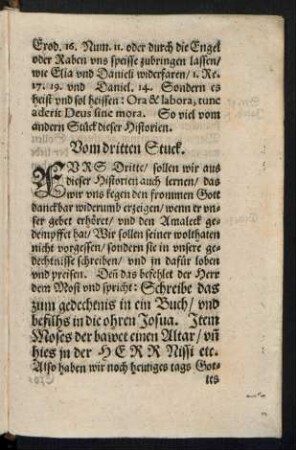 Exod. 16. Num. 11. oder durch die Engel
oder Raben vns speisse zubringen lassen/
wie Elia vnd Danieli widerfaren/ 1. Re.
17. 19. vnd Daniel. 14. Sondern es
heist vnd sol heissen: Ora & labora, tunc
aderit Deus sine mora. So viel vom
andern Stück dieser Historien.
Vom dritten Stuck.
FVRS Dritte/ sollen wir aus
dieser Historien auch lernen/ das
wir vns kegen den frommen Gott
danckbar widerumb erzeigen/ wenn er vn-
ser gebet erhöret/ vnd den Amaleck ge-
dempffet hat/ Wir sollen seiner wolthaten
nicht vorgessen/ sondern sie in vnsere ge-
dechtnisse schreiben/ vnd in dafür loben
vnd preisen. Deñ das befehlet der Herr
dem Mosi vnd spricht: Schreibe das
zum gedechtnis in ein Buch/ vnd
befilhs in die ohren Josua. Item
Moses der bawet einen Altar/ vñ
hies jn der HERR Nissi etc.
Also haben wir noch heutiges tags Got-
tes